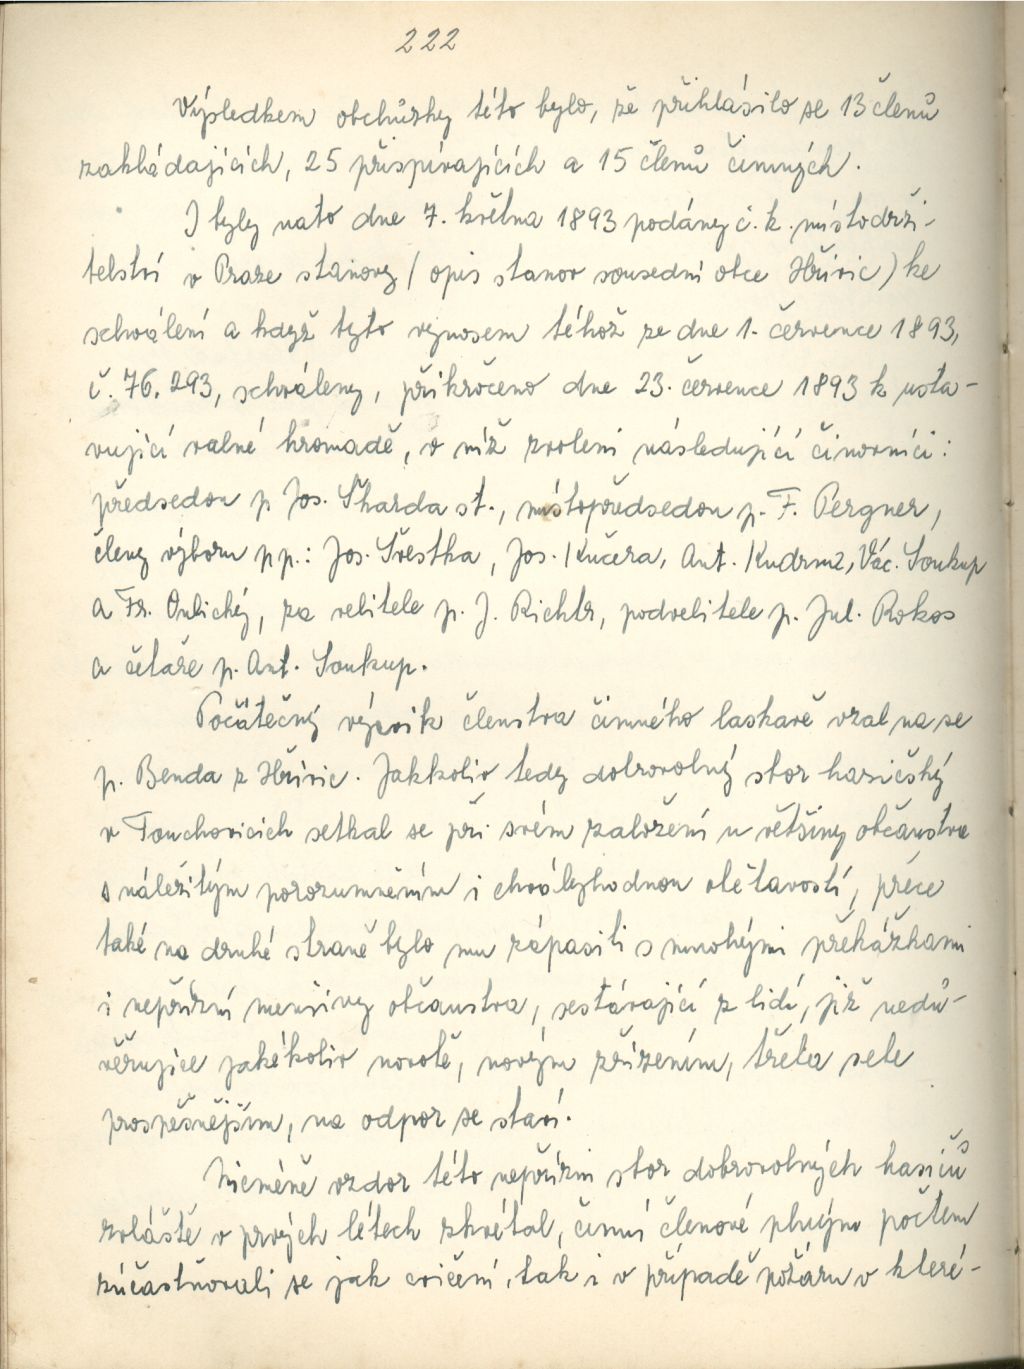 222
Výsledkem obchůzky této bylo, že přihlásilo se 13 členů
zakládajících, 25 přispívajících a 15 členů činných.
I byly nato dne 7. května 1893 podány c. k. místodrži-
telství v Praze stanovy (opis stanov sousední obce Hřivic) ke
schválení a když tyto výnosem téhož ze dne 1. července 1893,
č. 76.293, schváleny, přikročeno dne 23. července 1893 k usta-
vující valné hromadě, v níž zvoleni následující činovníci:
předsedou p. Jos. Škarda st., místopředsedou p. F. Pergner,
členy výboru pp.: Jos. Švestka, Jos. Kučera, Ant. Kudrnáč, Vác. Soukup
a Fr. Oulický, za velitele p. J. Richtr, podvelitele p. Jul. Rokos
a četaře p. Ant. Soukup.
Počátečný výcvik členstva činného laskavě vzal na se
p. Benda z Hřivic. Jakkoliv tedy dobrovolný sbor hasičský
v Touchovicích setkal se při svém založení u většiny občanstva
s náležitým porozuměním i chvályhodnou obětavostí, přece
také na druhé straně bylo mu zápasiti s mnohými překážkami
i nepřízní menšiny občanstva, sestávající z lidí, již nedů-
věřujíce jakékoliv novotě, novým zřízením, třeba sebe
prospěšnějším, na odpor se staví.
Nicméně vzdor této nepřízni sbor dobrovolných hasičů
zvláště v prvých létech zkvétal, činní členové plným počtem
zúčastňovali se jak cvičení, tak i v případě požáru v které-